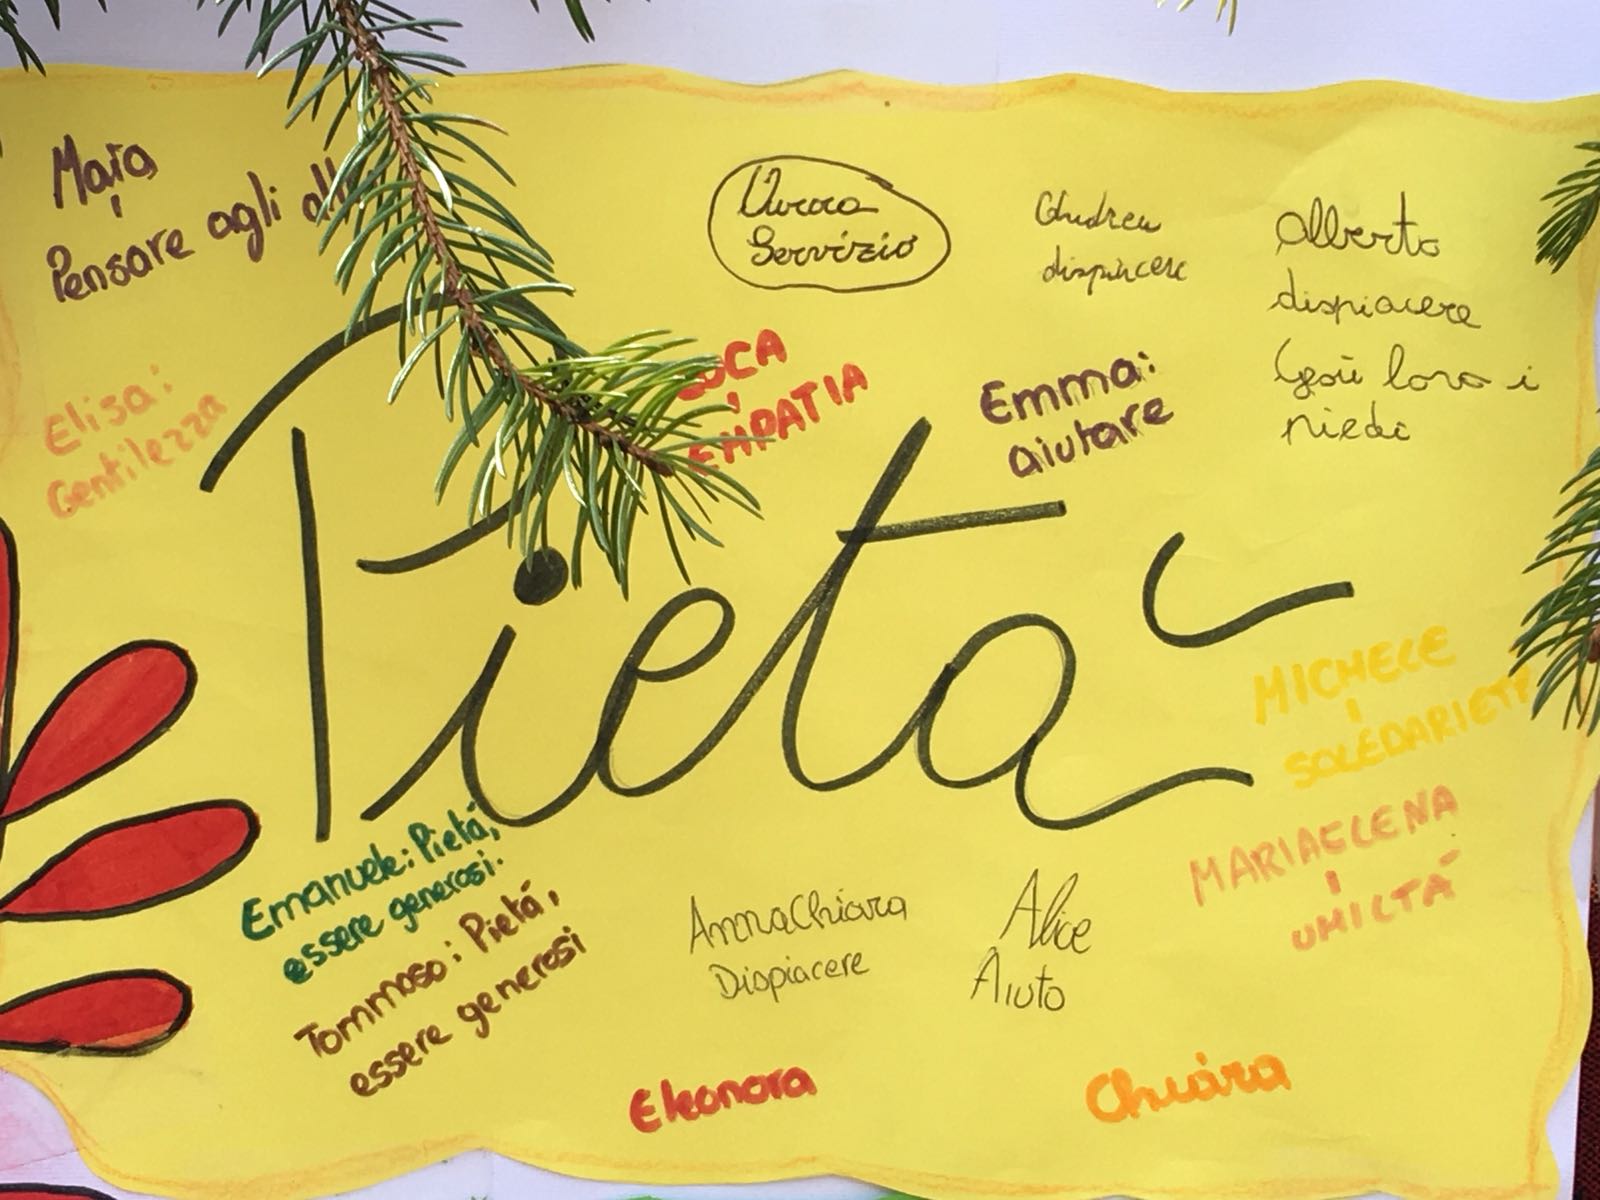 Maia
Pensare agli
Aurora
Servizio
Andrea
dispiacere
Alberto
dispiacere
Gesù lava i
piedi
Elisa:
Gentilezza
LUCA
EMPATIA
Emma:
aiutare
Pietà
MICHELE
SOLEDARIETÀ
MARIAELENA
UMILTÁ
Emanuele: Pietá,
essere generosi.
Tommaso: Pietá,
essere generosi
AnnaChiara
Dispiacere
Alice
Aiuto
Eleonora
Chiara